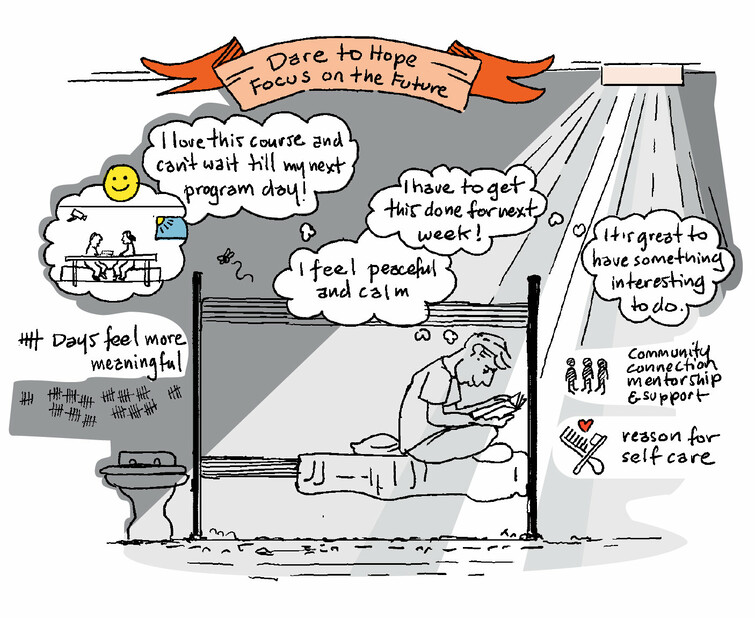 Dare to Hope
Focus on the Future
I love this course and
can't wait till my next
program day!
I have to get
this done for next
week!
It is great to
have something
interesting
to do.
I feel peaceful
and calm
Days feel more
meaningful
Community
connection
mentorship
& support
reason for
self care